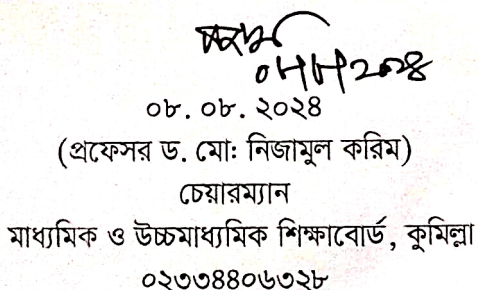 ০৮/০৮/২০২৪
০৮. ০৮. ২০২৪
(প্রফেসর ড. মো: নিজামুল করিম)
চেয়ারম্যান
মাধ্যমিক ও উচ্চমাধ্যমিক শিক্ষাবোর্ড, কুমিল্লা
০২৩৩৪৪০৬৩২৮